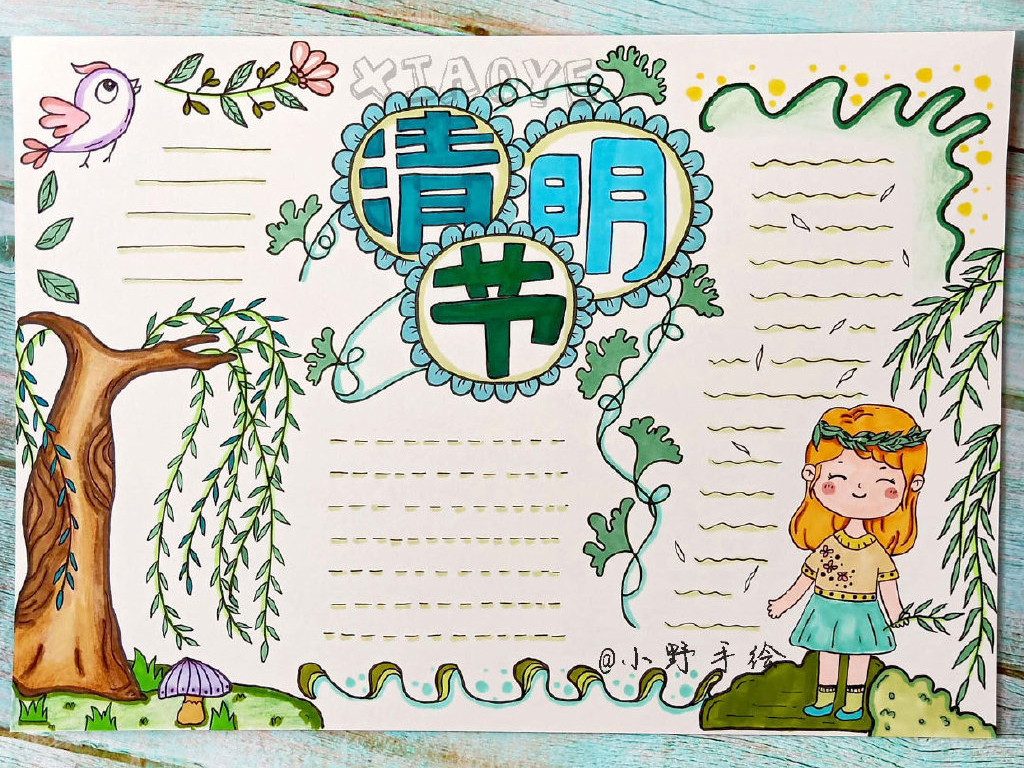 XIAOYE
清明
节
@小野手绘